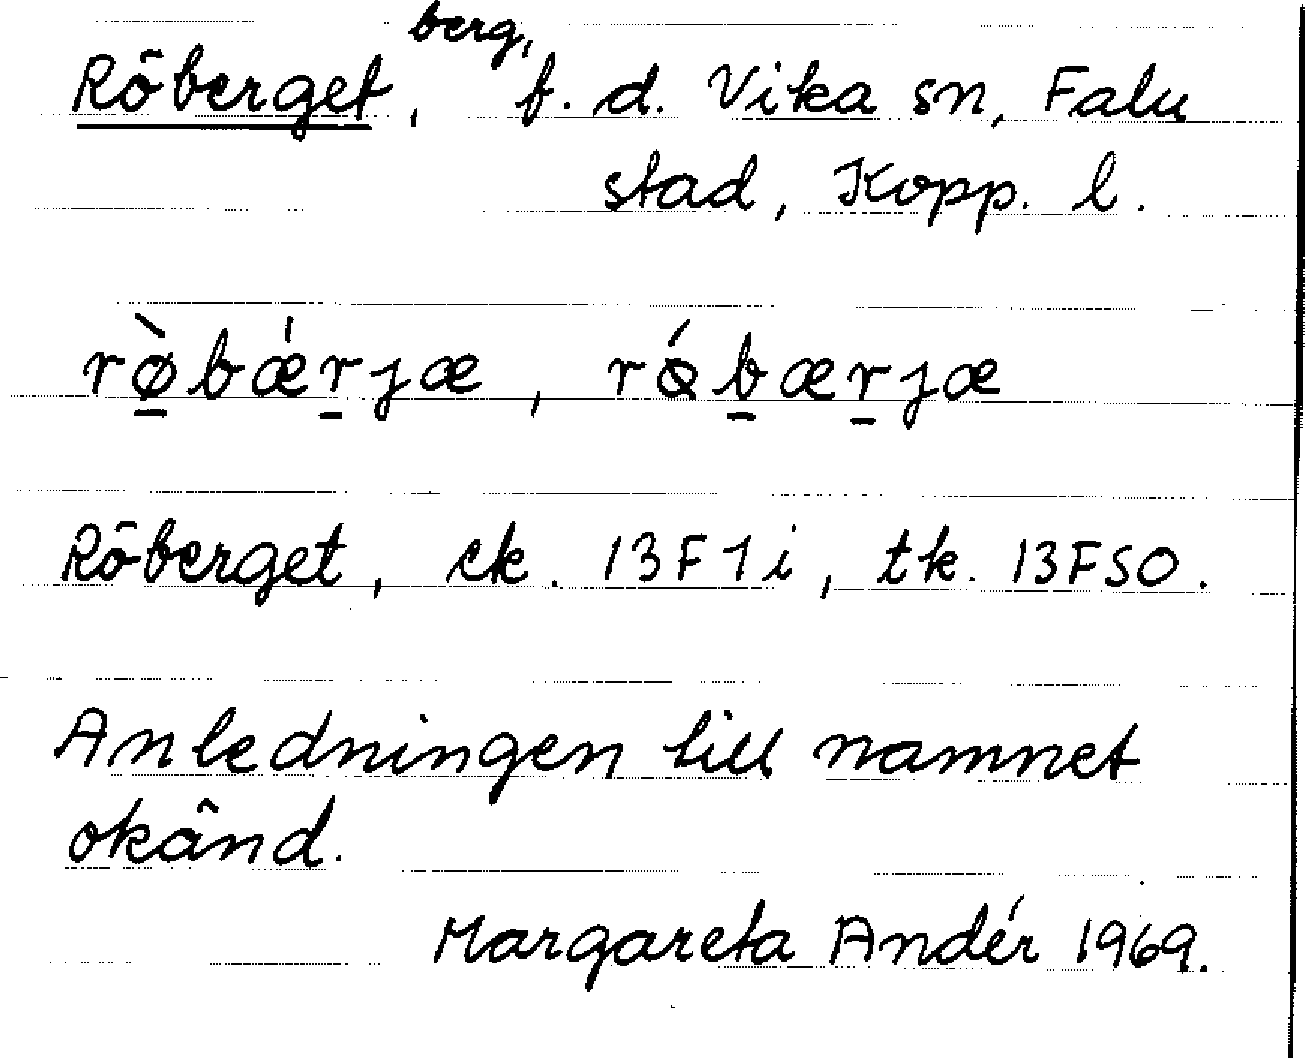 Röberget, berg, f. d. Vika sn, Falu
stad, Kopp. l.
rø̱̀bǽṟjæ, rǿḇæṟjæ
Röberget, ek. 13F1i, tk. 13FSO.
Anledningen till namnet
okänd.
Margareta Andér 1969.